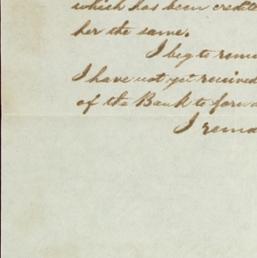 which has been credite
her the same.
I beg to rem
I have not yet received
of the Bank to forwa
I rema